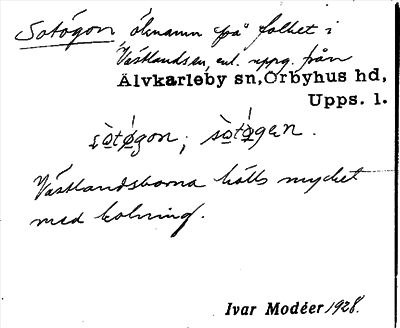 Sotögon, öknamn på folket i
Västlandsen, enl. uppg. från
Älvkarleby sn, Örbyhus hd,
Upps. l.
sòtø̀gon; sòtø̀gen.
Västlandsborna hölls mycket
med kolning.
Ivar Modéer 1928.